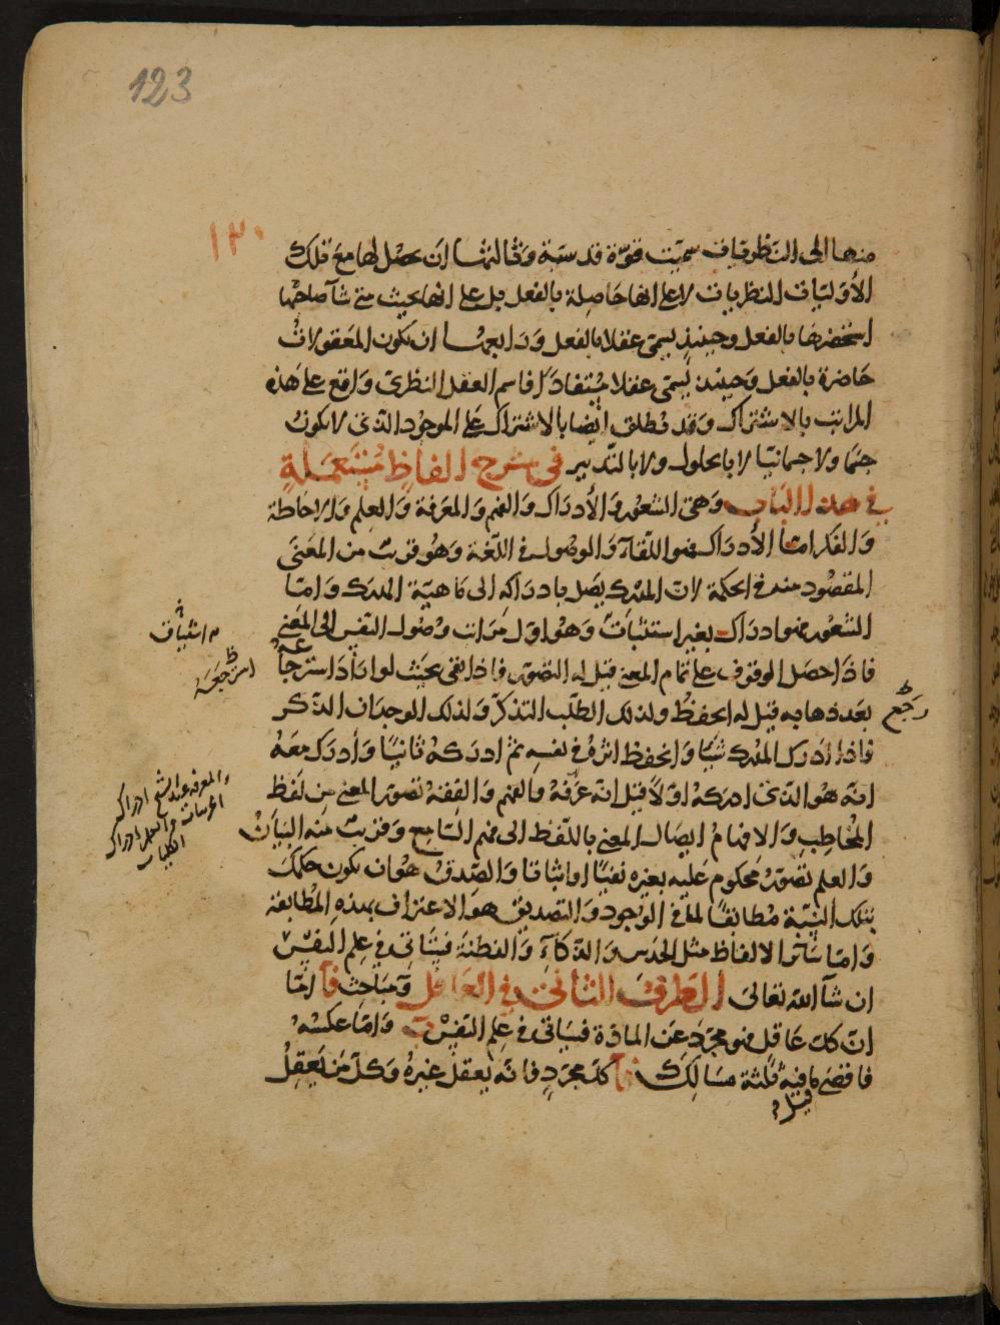 123
١٣٠
منها الى النظريات سميت قوة قدسية وثالثها ان يحصل لها مع تلك
الأوليات النظريات لا على انها حاصلة بالفعل بل على انها بحيث متى شآ صاحبها
استحضرها بالفعل وحينئذ يسمى عقلا بالفعل ورابعها ان يكون المعقولات
حاضرة بالفعل وحينئذ يسمى عقلا مستفادا فاسم العقل النظرى واقع على هذه
المراتب بالاشتراك وقد يطلق ايضا بالاشتراك على الموجود الذى لا يكون
جسما ولا جسمانيا لا بالحلول ولا بالتدبير فى شرح الفاظ مستعملة
فى هذا الباب وهى الشعور والأدراك والفهم والمعرفة والعلم والاحاطة
والفكر اما الأدراك فهو اللقآء والوصول فى اللغة وهو قريب من المعنى
المقصود منه فى الحكمة لان المدرك يصل بادراكه الى ماهية المدرك واما
الشعور فهو ادراك بغير استثبات وهو اول مراتب وصول النفس الى المعنى
فاذا حصل الوقوف على تمام المعنى قيل له التصور فاذا بقى بحيث لو اراد استرجاعه
بعد ذهابه قيل له الحفظ ولذلك الطلب التذكر ولذلك الوجدان الذكر
فاذا ادرك المدرك شيئا وانحفظ اثره فى نفسه ثم ادركه ثانيا وأدرك معه
انه هو الذى ادركه اولا قيل انه عرفه والفهم والفقه تصور المعنى من لفظ
المخاطب والافهام ايصال المعنى باللفظ الى فهم السامع وقريب منه البيان
والعلم تصور محكوم عليه بغيره نفيا او اثباتا والصدق هو ان يكون حكمك
بتلك النسبة مطابقا لما فى الوجود والتصديق هو الاعتراف بهذه المطابقة
واما سائر الالفاظ مثل الحدس والذكآء والفطنة فسيأتى فى علم النفس
ان شآ الله تعالى الطرف الثانى فى العاقل وفيه مباحث اما
ان كل عاقل فهو مجرد عن المادة فسيأتى فى علم النفس واما عكسه
فاقصى ما فيه ثلثة مسالك كل مجرد فانه يعقل غيره وكل من يعقل
قيل
استثبات
استرجعه
رجع
والمعرفة عند الشيخ ادراك
الجزئيات والعلم ادراك
الكليات